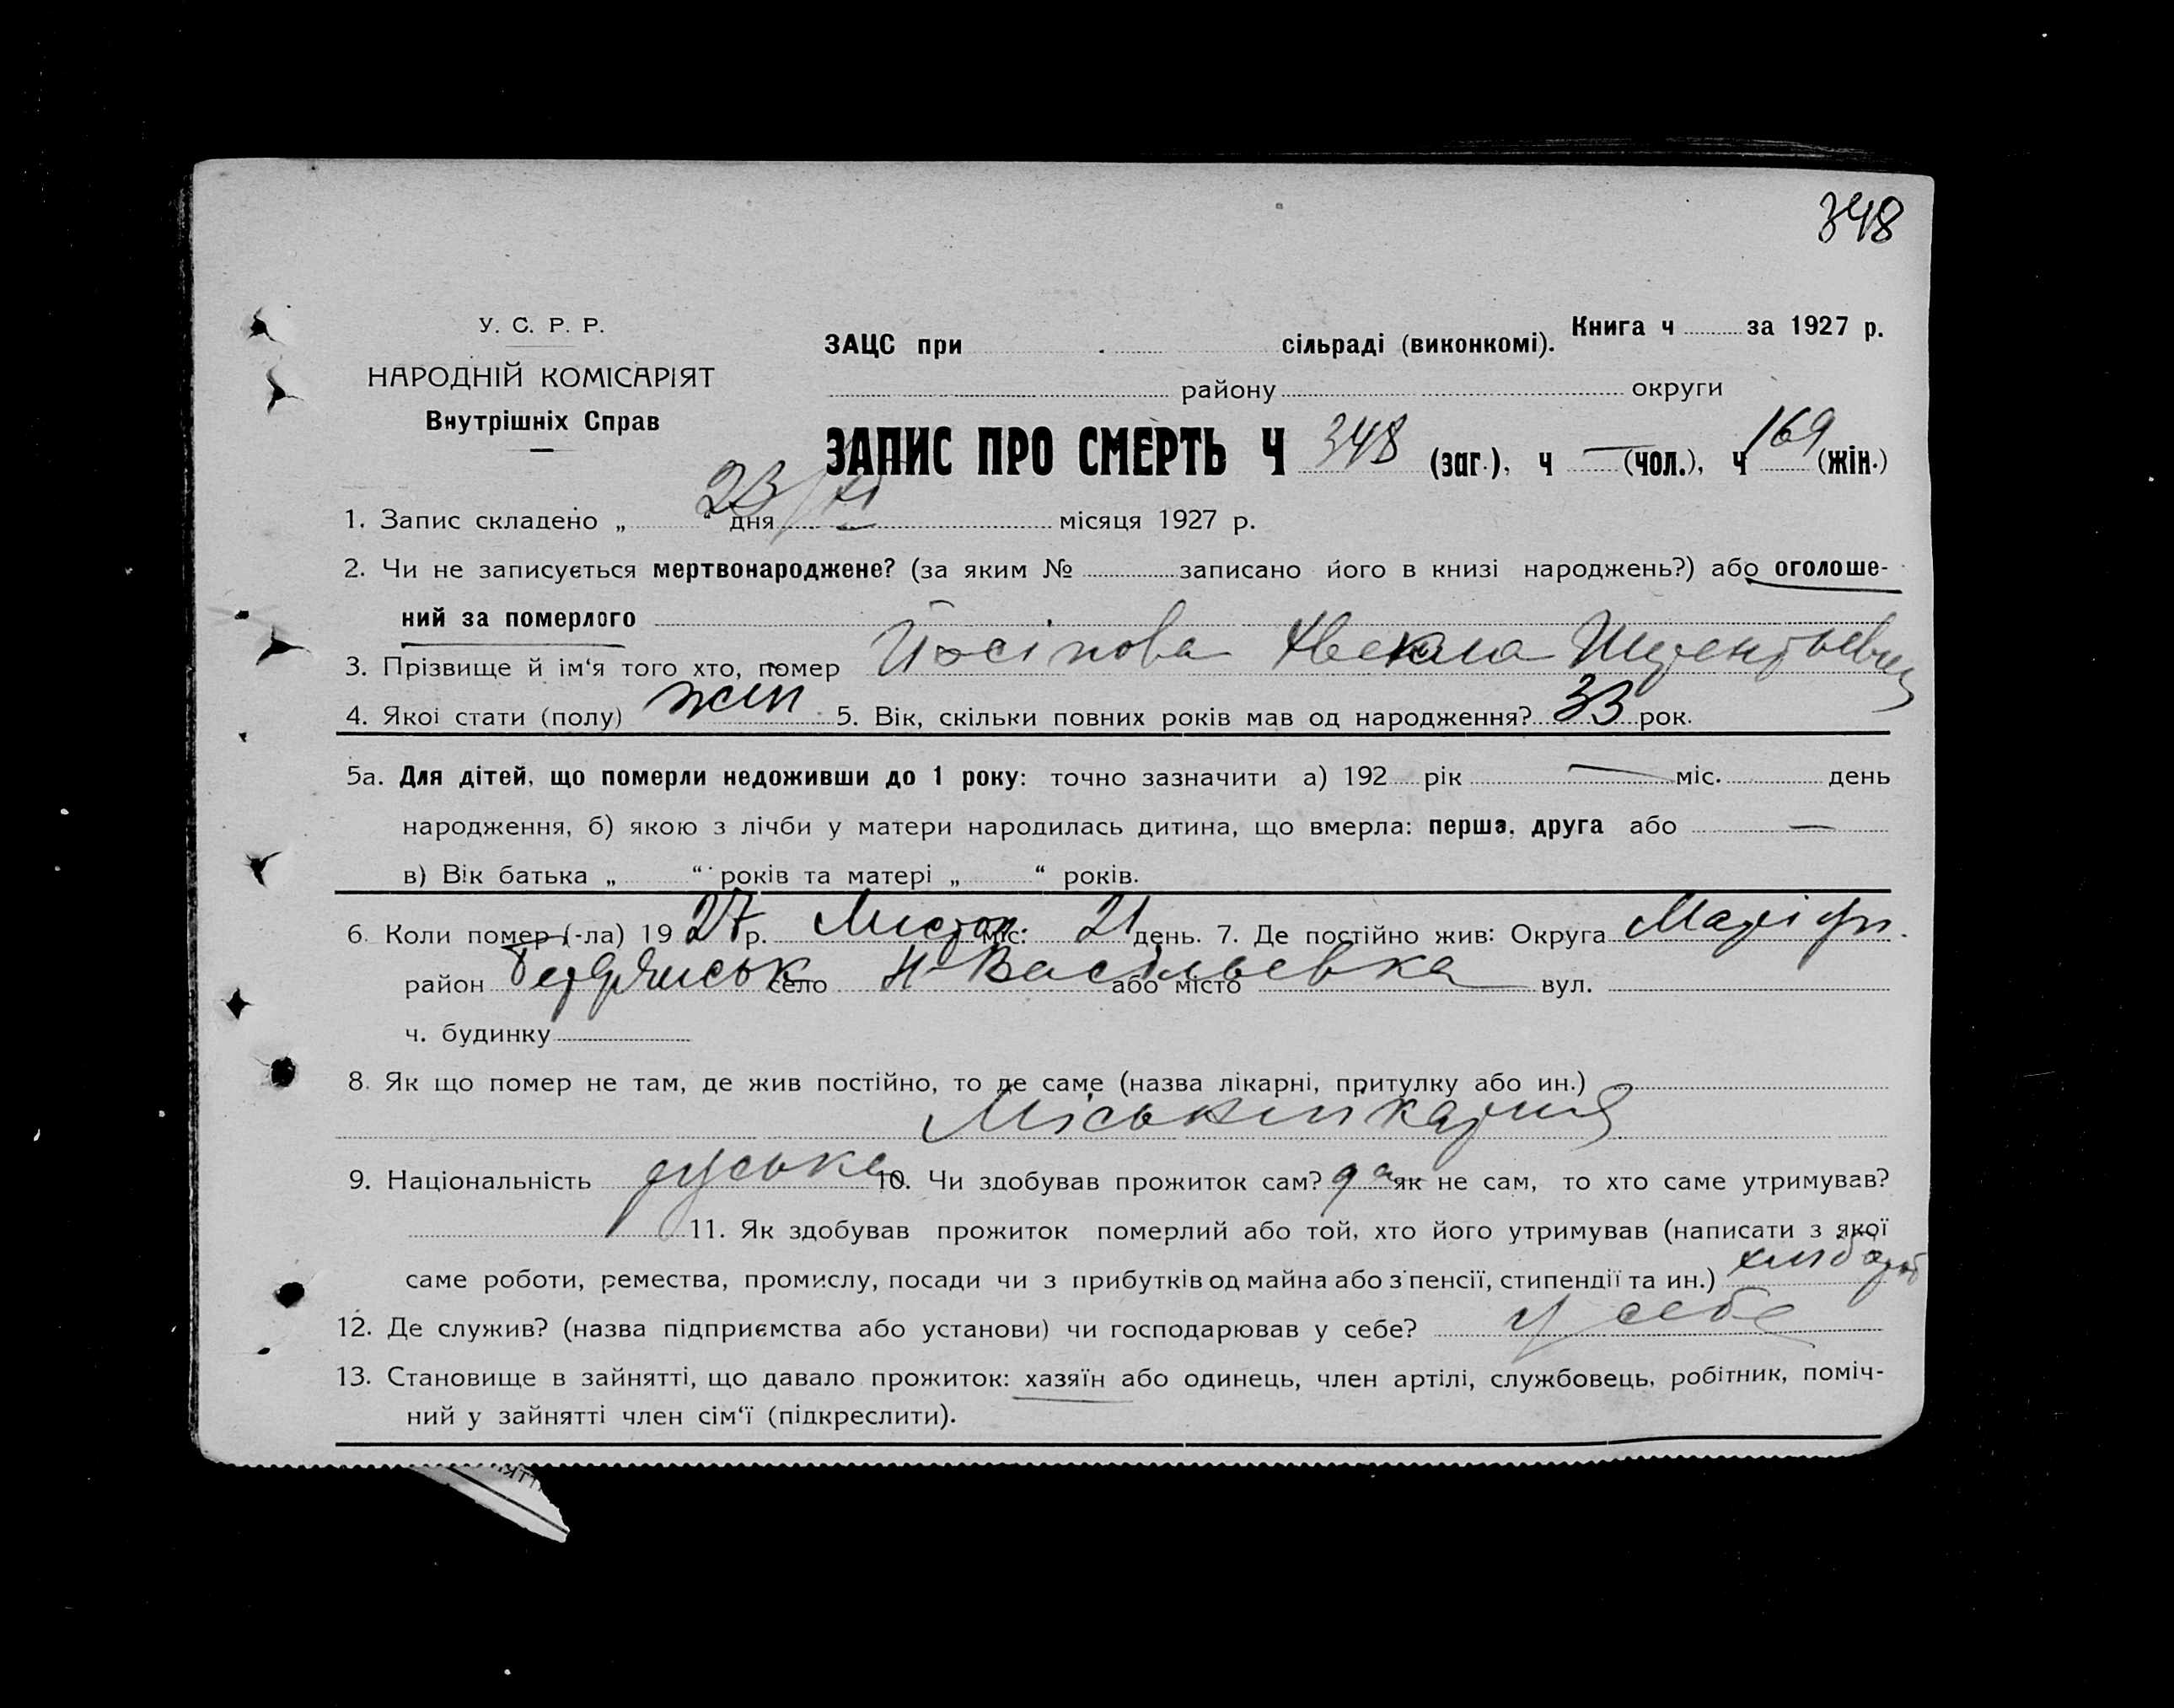 348
У. С. Р. Р.
НАРОДНІЙ КОМІСАРІЯТ
Внутрішніх Справ
ЗАЦС при сільраді (виконкомі). Книга ч за 1927 р.
району округи
ЗАПИС ПРО СМЕРТЬ Ч 348 (заг.), ч — (чол.), ч 169 (жін.)
1. Запис складено „ 23 “ дня XI місяця 1927 р.
2. Чи не записується мертвонароджене? (за яким № записано його в книзі народжень?) або оголоше-
ний за померлого
3. Прізвище й ім‘я того хто, помер Йосіпова Текла
4. Якої стати (полу) жін 5. Вік, скільки повних років мав од народження? 33 рок.
5а. Для дітей, що померли недоживши до 1 року: точно зазначити а) 192 рік — міс. день
народження, б) якою з лічби у матери народилась дитина, що вмерла: перша, друга або —
в) Вік батька „ “ років та матері „ “ років.
6. Коли помер (-ла) 1927 р. Листоп. міс. 21 день. 7. Де постійно жив: Округа Маріюп.
район Бердянськ село Н-Васільевка або місто вул.
ч. будинку
8. Як що помер не там, де жив постійно, то де саме (назва лікарні, притулку або ин.)
Міськлікарня
9. Національність руська 10. Чи здобував прожиток сам? да як не сам, то хто саме утримував?
11. Як здобував прожиток померлий або той, хто його утримував (написати з якої
саме роботи, ремества, промислу, посади чи з прибутків од майна або з пенсії, стипендії та ин.) хлібороб
12. Де служив? (назва підприємства або установи) чи господарював у себе? у себе
13. Становище в зайнятті, що давало прожиток: хазяїн або одинець, член артілі, службовець, робітник, поміч-
ний у зайнятті член сім‘ї (підкреслити).